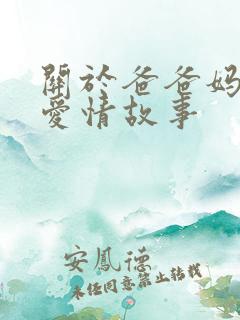 關於爸爸妈
愛情故事
安鳳德
未经同意禁止转载